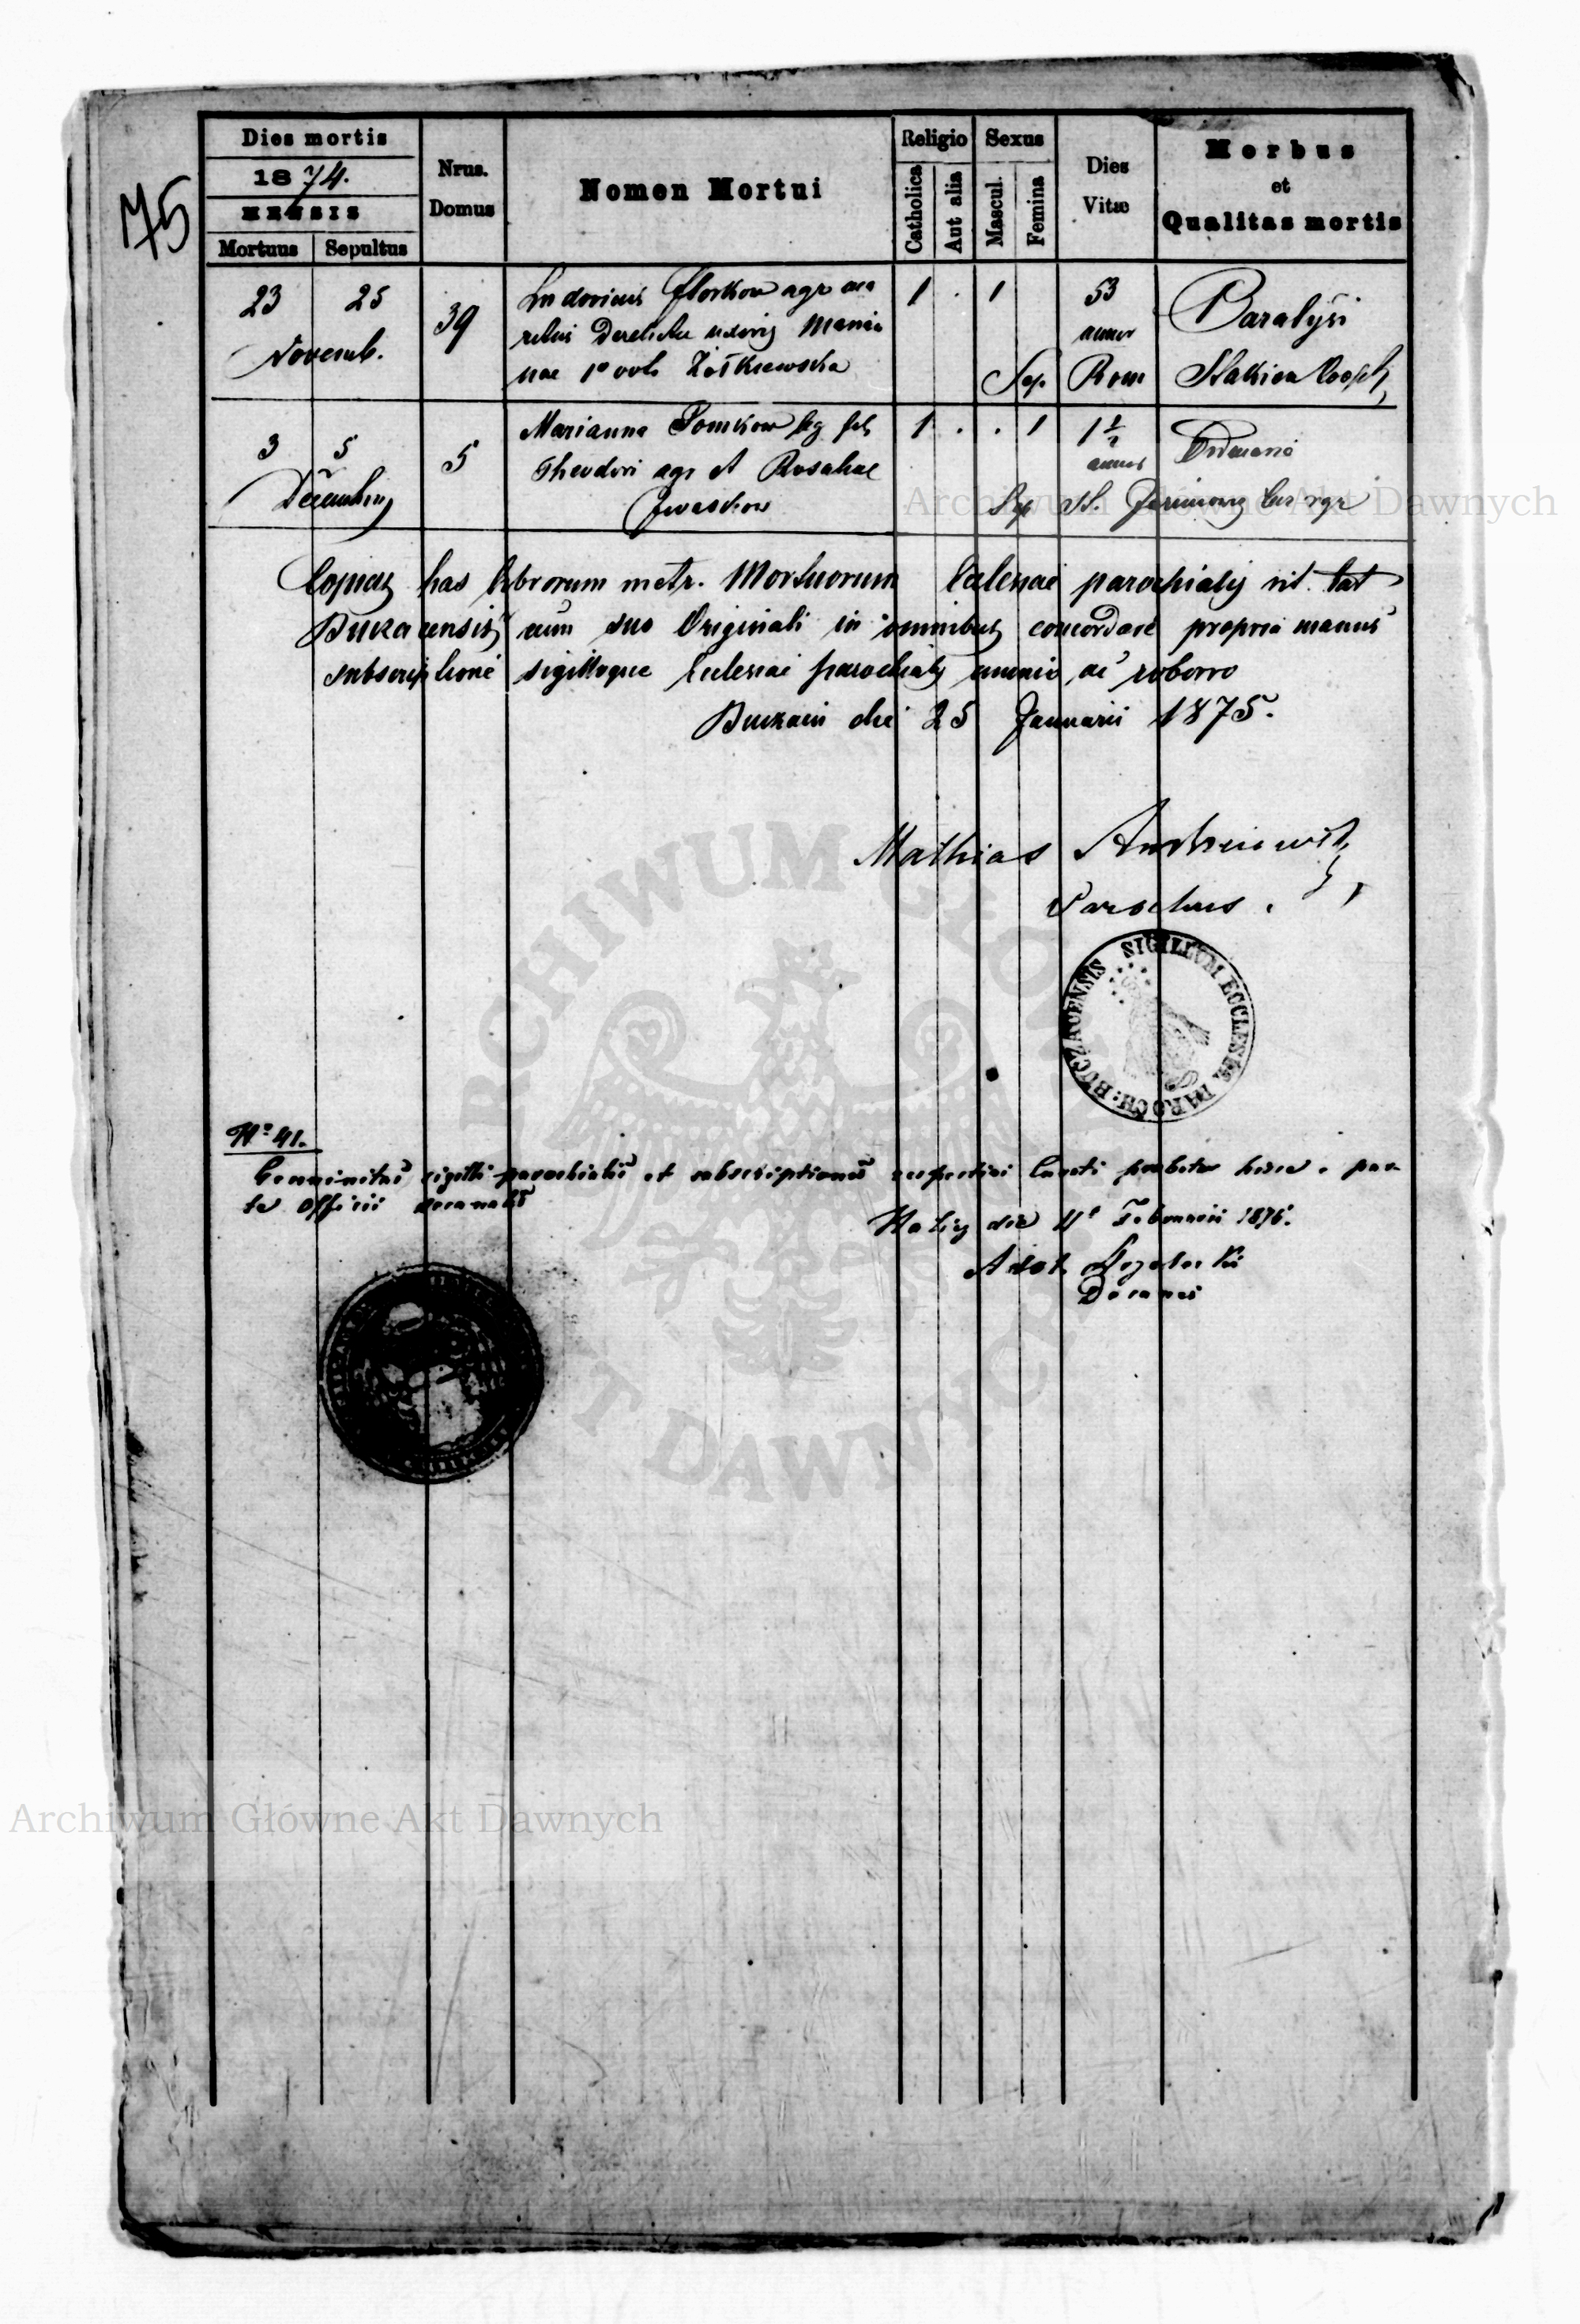 75
Dies mortis
1874.
MENSIS
Mortuus Sepultus
Nrus.
Domus
Nomen Mortui
Religio
Catholica
Aut alia
Sexus
Mascul.
Femina
Dies
Vitæ
Morbus
et
Qualitas mortis
23 25
Novemb.
39
Ludovicus Florkow agr
relictus uxoris Marian
nae 1º voto
1 . 1
53
annor
Paralysi
Sep. Rom
3 5
Decembris
5
Marianna Tomkow leg fil
Theodori agr et Rosaliae
Iwaskow
1 . . 1
1 1/2
annus
Ordinaria
Sep
Copias has librorum metr. Mortuorum Ecclesiae parochialis rit. lat
Buczacensis cum suo Originali in omnibus concordare propria manus
subscriptione sigilloque Ecclesiae parochialis munio ac roboro
Buczacii die 25 Januarii 1875.
Mathias
Parochus.
SIGILLUM ECCLESIÆ PAROCH: BUCZACENSIS
Nº 41.
Genuinitas sigilli parochialis et subscriptionis respectivi Curati probatur hisce a par-
te Officii Decanalis
die 4ª Februarii 1875.
Decanus
ARCHIWUM GŁÓWNE AKT DAWNYCH
Archiwum Główne Akt Dawnych
Archiwum Główne Akt Dawnych